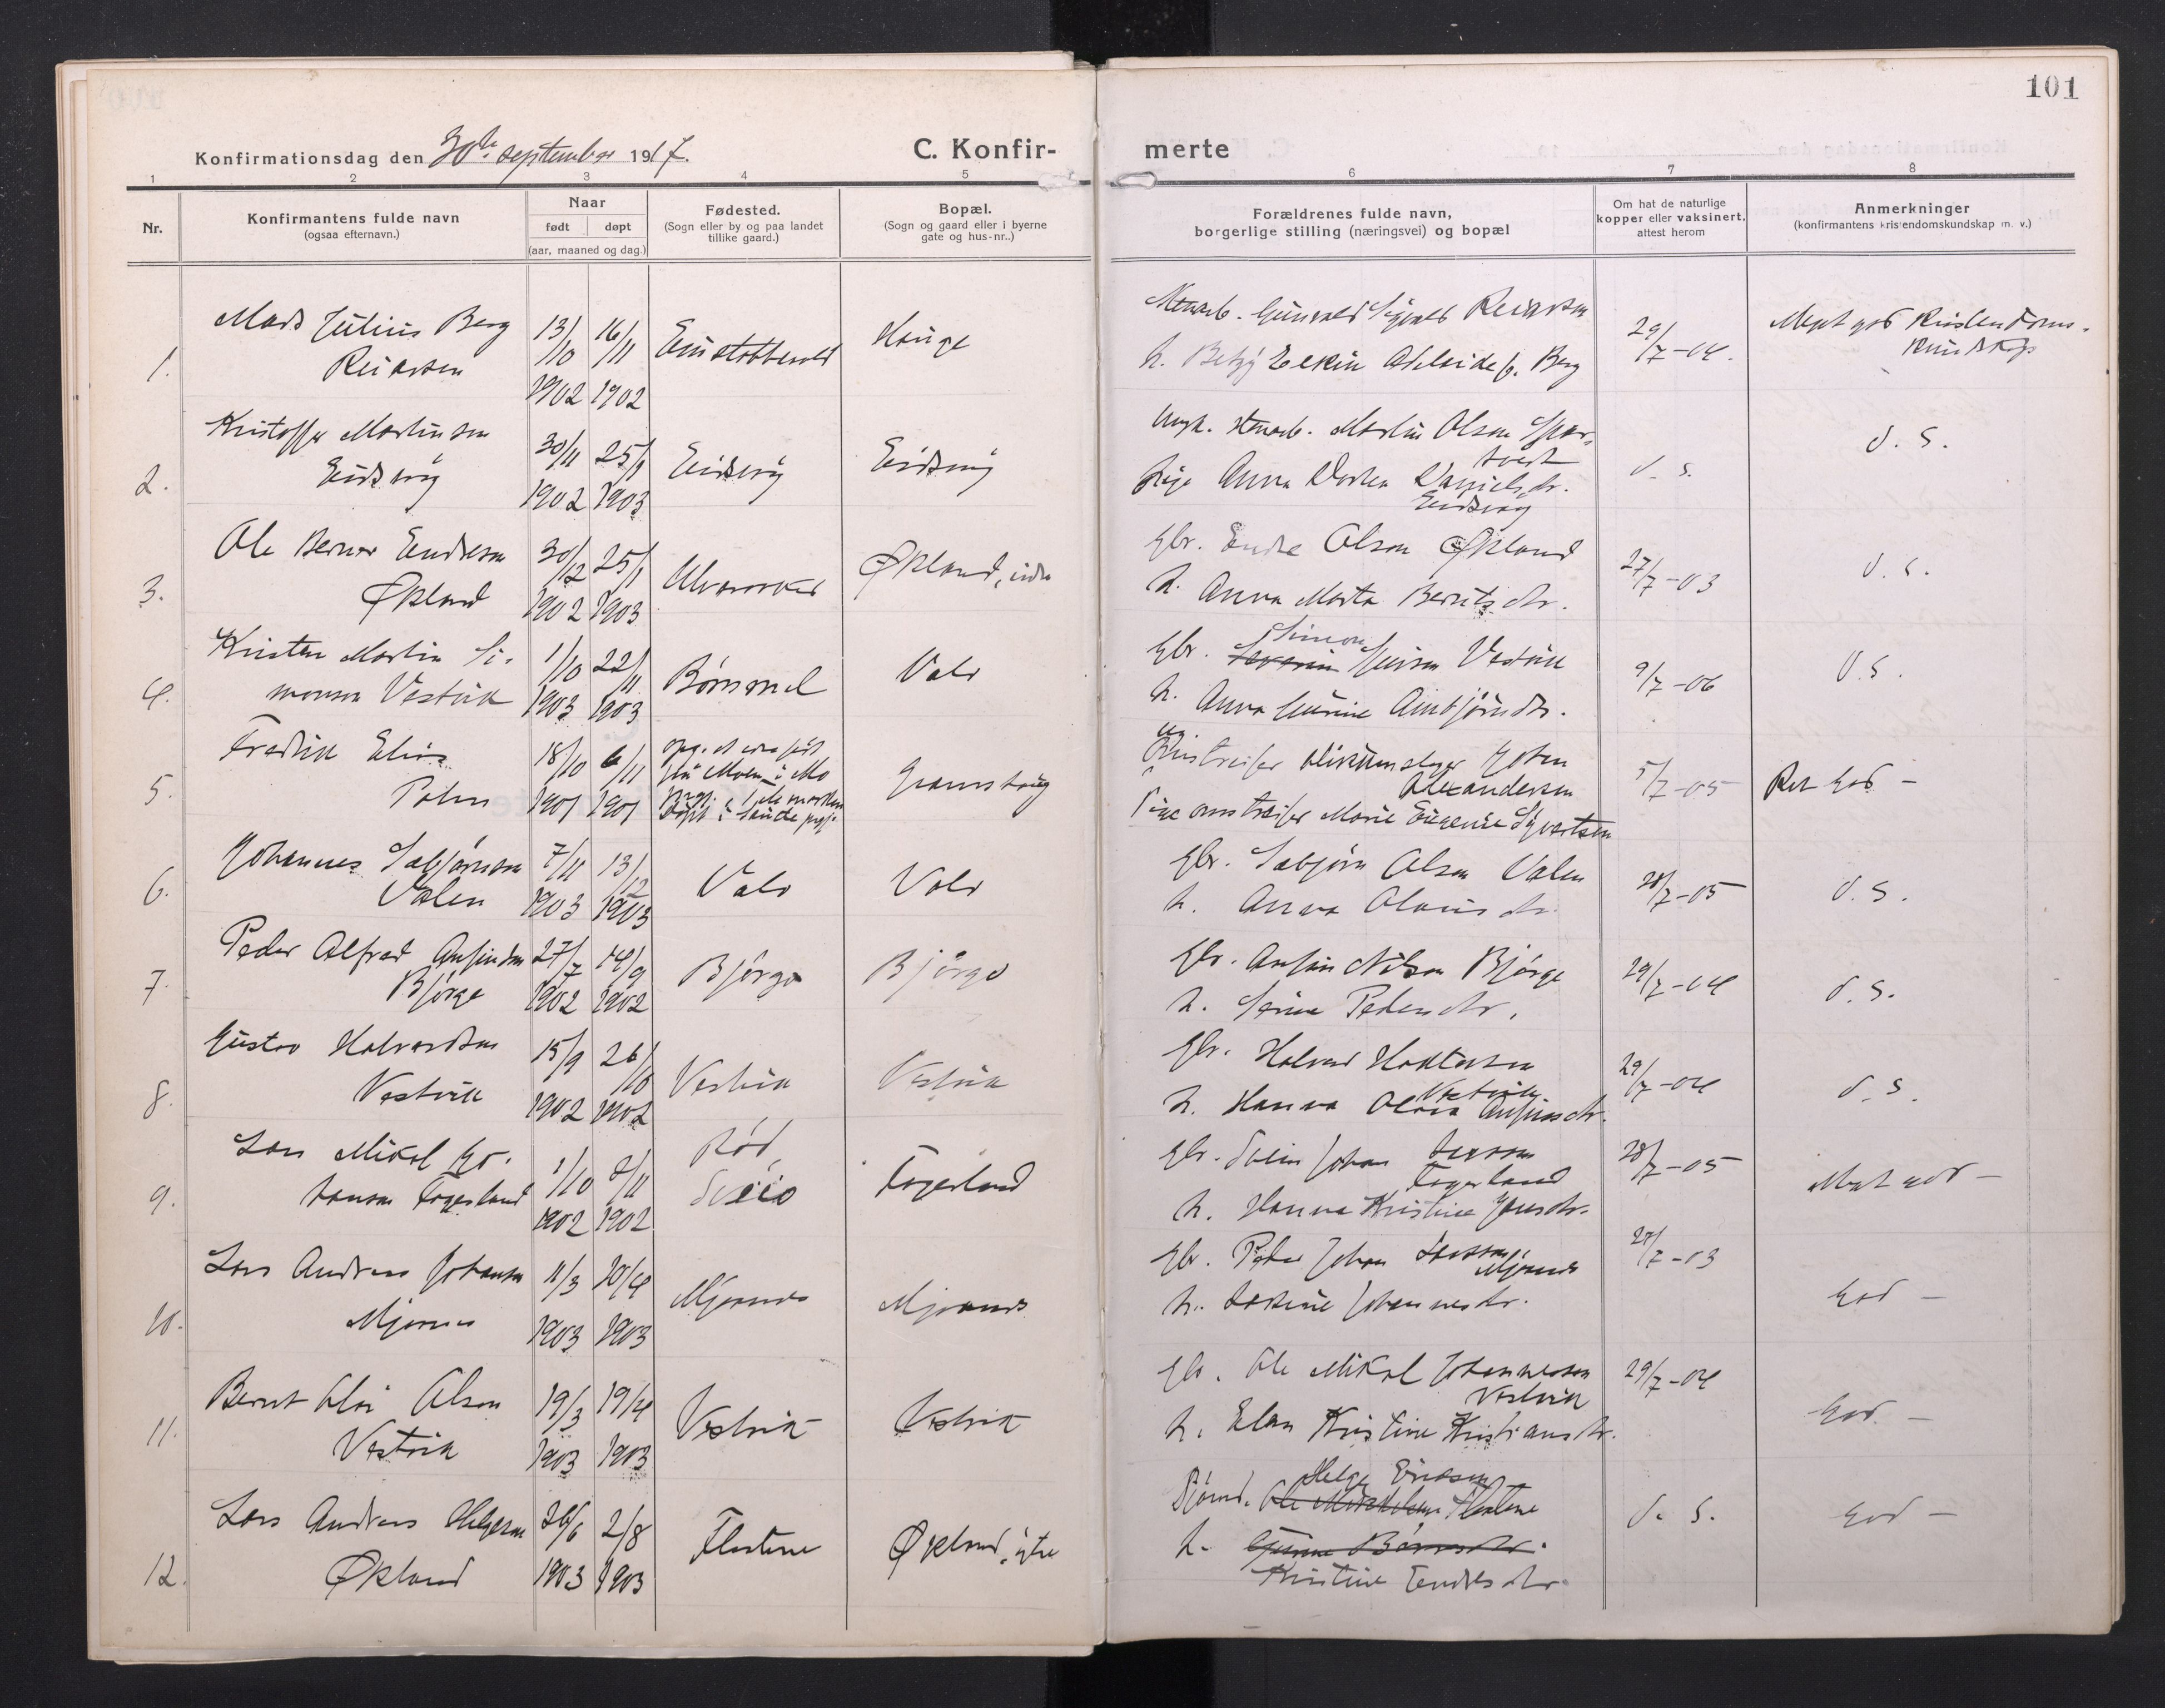 101
Konfirmationsdag den 30te september 1917.
C. Konfir-
merte
1 2 3 4 5 6 7 8
Nr.
Konfirmantens fulde navn
(ogsaa efternavn.)
Naar
født døpt
(aar, maaned og dag.)
Fødested.
(Sogn eller by og paa landet
tillike gaard.)
Bopæl.
(Sogn og gaard eller i byerne
gate og hus-nr..)
Forældrenes fulde navn,
borgerlige stilling (næringsvei) og bopæl
Om hat de naturlige
kopper eller vaksinert,
attest herom
Anmerkninger
(konfirmantens kristendomskundskap m. v.)
1.
Mads Julius Berg
13/10 1902 16/11 1902
Hauge
h. Betzy Adelaide f. Berg
29/7-04.
Meget god Kristendoms-
kundskap
2.
Kristoffer Martinsen
Eidsvåg
30/11 1902 25/1 1903
Eidsvåg
Eidsvåg
Ungk. Martin Olsen
Pige Anna Dorthea Danielsdtr.
Eidsvåg
d. s.
d. s.
3.
Ole Berner Endresen
Økland
30/12 1902 25/1 1903
Økland, indre
Gbr. Endre Olson Økland
h. Anna Marta Berntsdtr.
27/7-03
d. s.
4.
Kristen Martin Si-
monsen Vestvik
1/10 1903 22/11 1903
Børnmel
Vale
Simon
Gbr. Vestvik
h. Anna Gurine
9/7-06
d. s.
5.
Fredrik Elias
18/10 1901 6/11 1901
Alexandersen
Marie Eugenie Syvertsen
5/7-05
Ret god -
6.
Johannes Sebjørnson
Valen
7/11 1903 13/12 1903
Vale
Vale
Gbr. Sebjørn Olsen Valen
h. Anna
28/7-05
d. s.
7.
Peder Alfred Anfindsen
Bjørge
27/7 1902 14/9 1902
Bjørge
Bjørge
Gbr. Anfin Nilsen Bjørge
h. Serine Pedersdtr.
29/7-04
d. s.
8.
Gustav Halvardsen
Vestvik
15/9 1902 26/10 1902
Vestvik
Vestvik
Gbr. Halvard
Vestvik
h. Hanna Olava Anfinsdtr.
29/7-04
d. s.
9.
Lars Mikal Jo-
hansen Fagerland
1/10 1902 2/11 1902
Rød,
Sveio
Fagerland
Gbr. Svein Johan Larsson
Fagerland
h. Hanna Kristine Jensdtr.
28/7-05
Meget god -
10.
Lars Andreas Johansen
11/3 1903 20/4 1903
Gbr. Peder Johan Larsson
h. Johannesdtr.
27/7-03
God -
11.
Bernt Olai Olsen
Vestvik
19/3 1903 19/4 1903
Vestvik
Vestvik
Gbr. Ole Mikal Johannessen
Vestvik
h. Elen Kristine Kristiansdtr.
29/7-04
God. -
12.
Lars Andreas Helgesen
Økland
26/6 1903 2/8 1903
Flatene
Økland, ytre
Helge Eriksen
h.
Kristine Endresdtr.
d. s.
God -